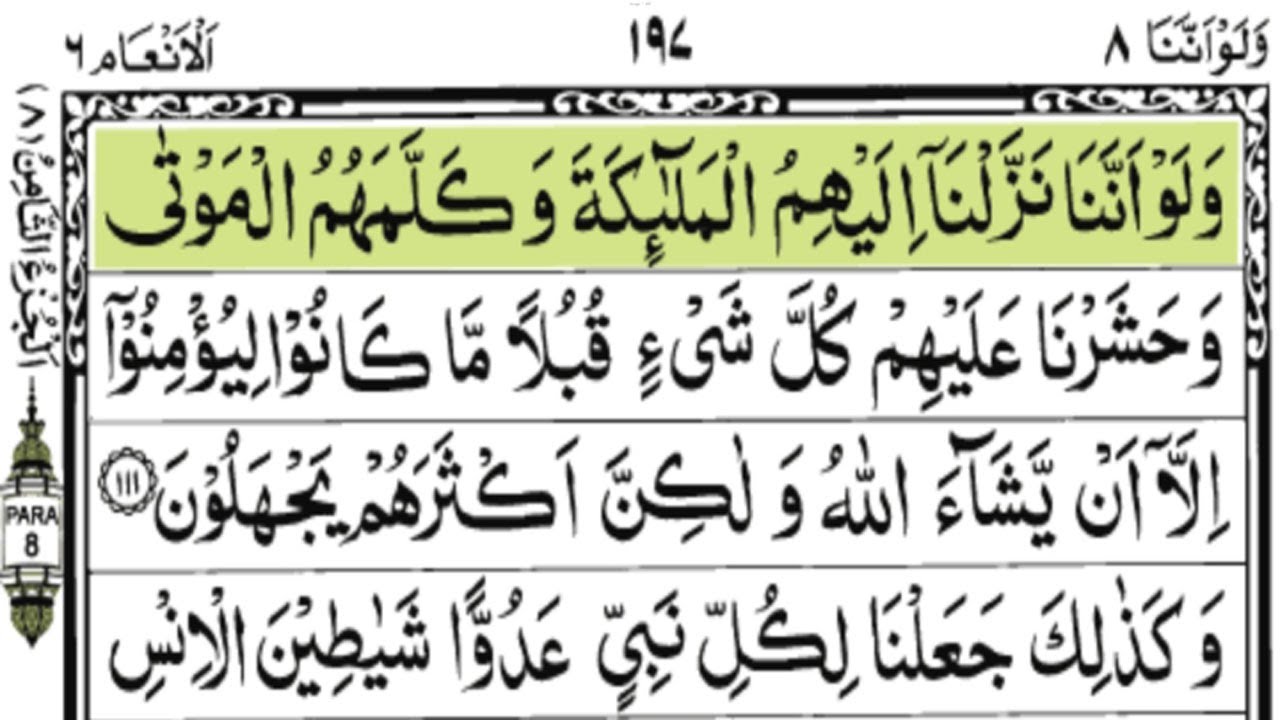 وَلَوْاَنَّنَا ٨
١٩٧
اَلْاَنْعَام ٦
وَلَوْ اَنَّنَا نَزَّلْنَاۤ اِلَيْهِمُ الْمَلٰٓئِكَةَ وَ كَلَّمَهُمُ الْمَوْتٰى
وَ حَشَرْنَا عَلَيْهِمْ كُلَّ شَىْءٍ قُبُلًا مَّا كَانُوْا لِيُؤْمِنُوْۤا
اِلَّاۤ اَنْ يَّشَآءَ اللّٰهُ وَ لٰكِنَّ اَكْثَرَهُمْ يَجْهَلُوْنَ ١١١
وَ كَذٰلِكَ جَعَلْنَا لِكُلِّ نَبِىٍّ عَدُوًّا شَيٰطِيْنَ الْاِنْسِ
اَلْجُزْءُ الثَّامِنُ (٨)
PARA
8